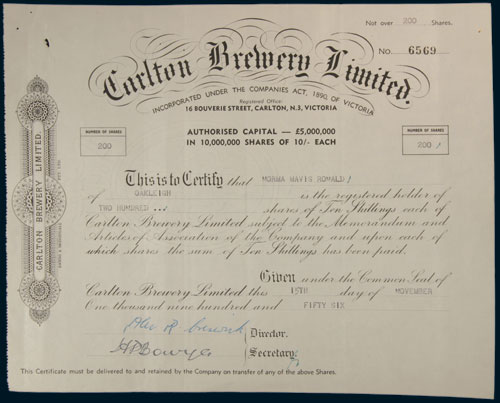 Not over 200 Shares.
No. 6569
Carlton Brewery Limited.
INCORPORATED UNDER THE COMPANIES ACT, 1890, OF VICTORIA
Registered Office:
16 BOUVERIE STREET, CARLTON, N.3, VICTORIA
AUTHORISED CAPITAL — £5,000,000
IN 10,000,000 SHARES OF 10/- EACH
NUMBER OF SHARES
200
NUMBER OF SHARES
200
CARLTON BREWERY LIMITED.
This is to Certify that NORMA MAVIS RONALD
of OAKLEIGH is the registered holder of
TWO HUNDRED ... shares of Ten Shillings each of
Carlton Brewery Limited subject to the Memorandum and
Articles of Association of the Company and upon each of
which shares the sum of Ten Shillings has been paid.
Given under the Common Seal of
Carlton Brewery Limited this 15TH day of NOVEMBER
One thousand nine hundred and FIFTY SIX
Director.
Secretary.
This Certificate must be delivered to and retained by the Company on transfer of any of the above Shares.